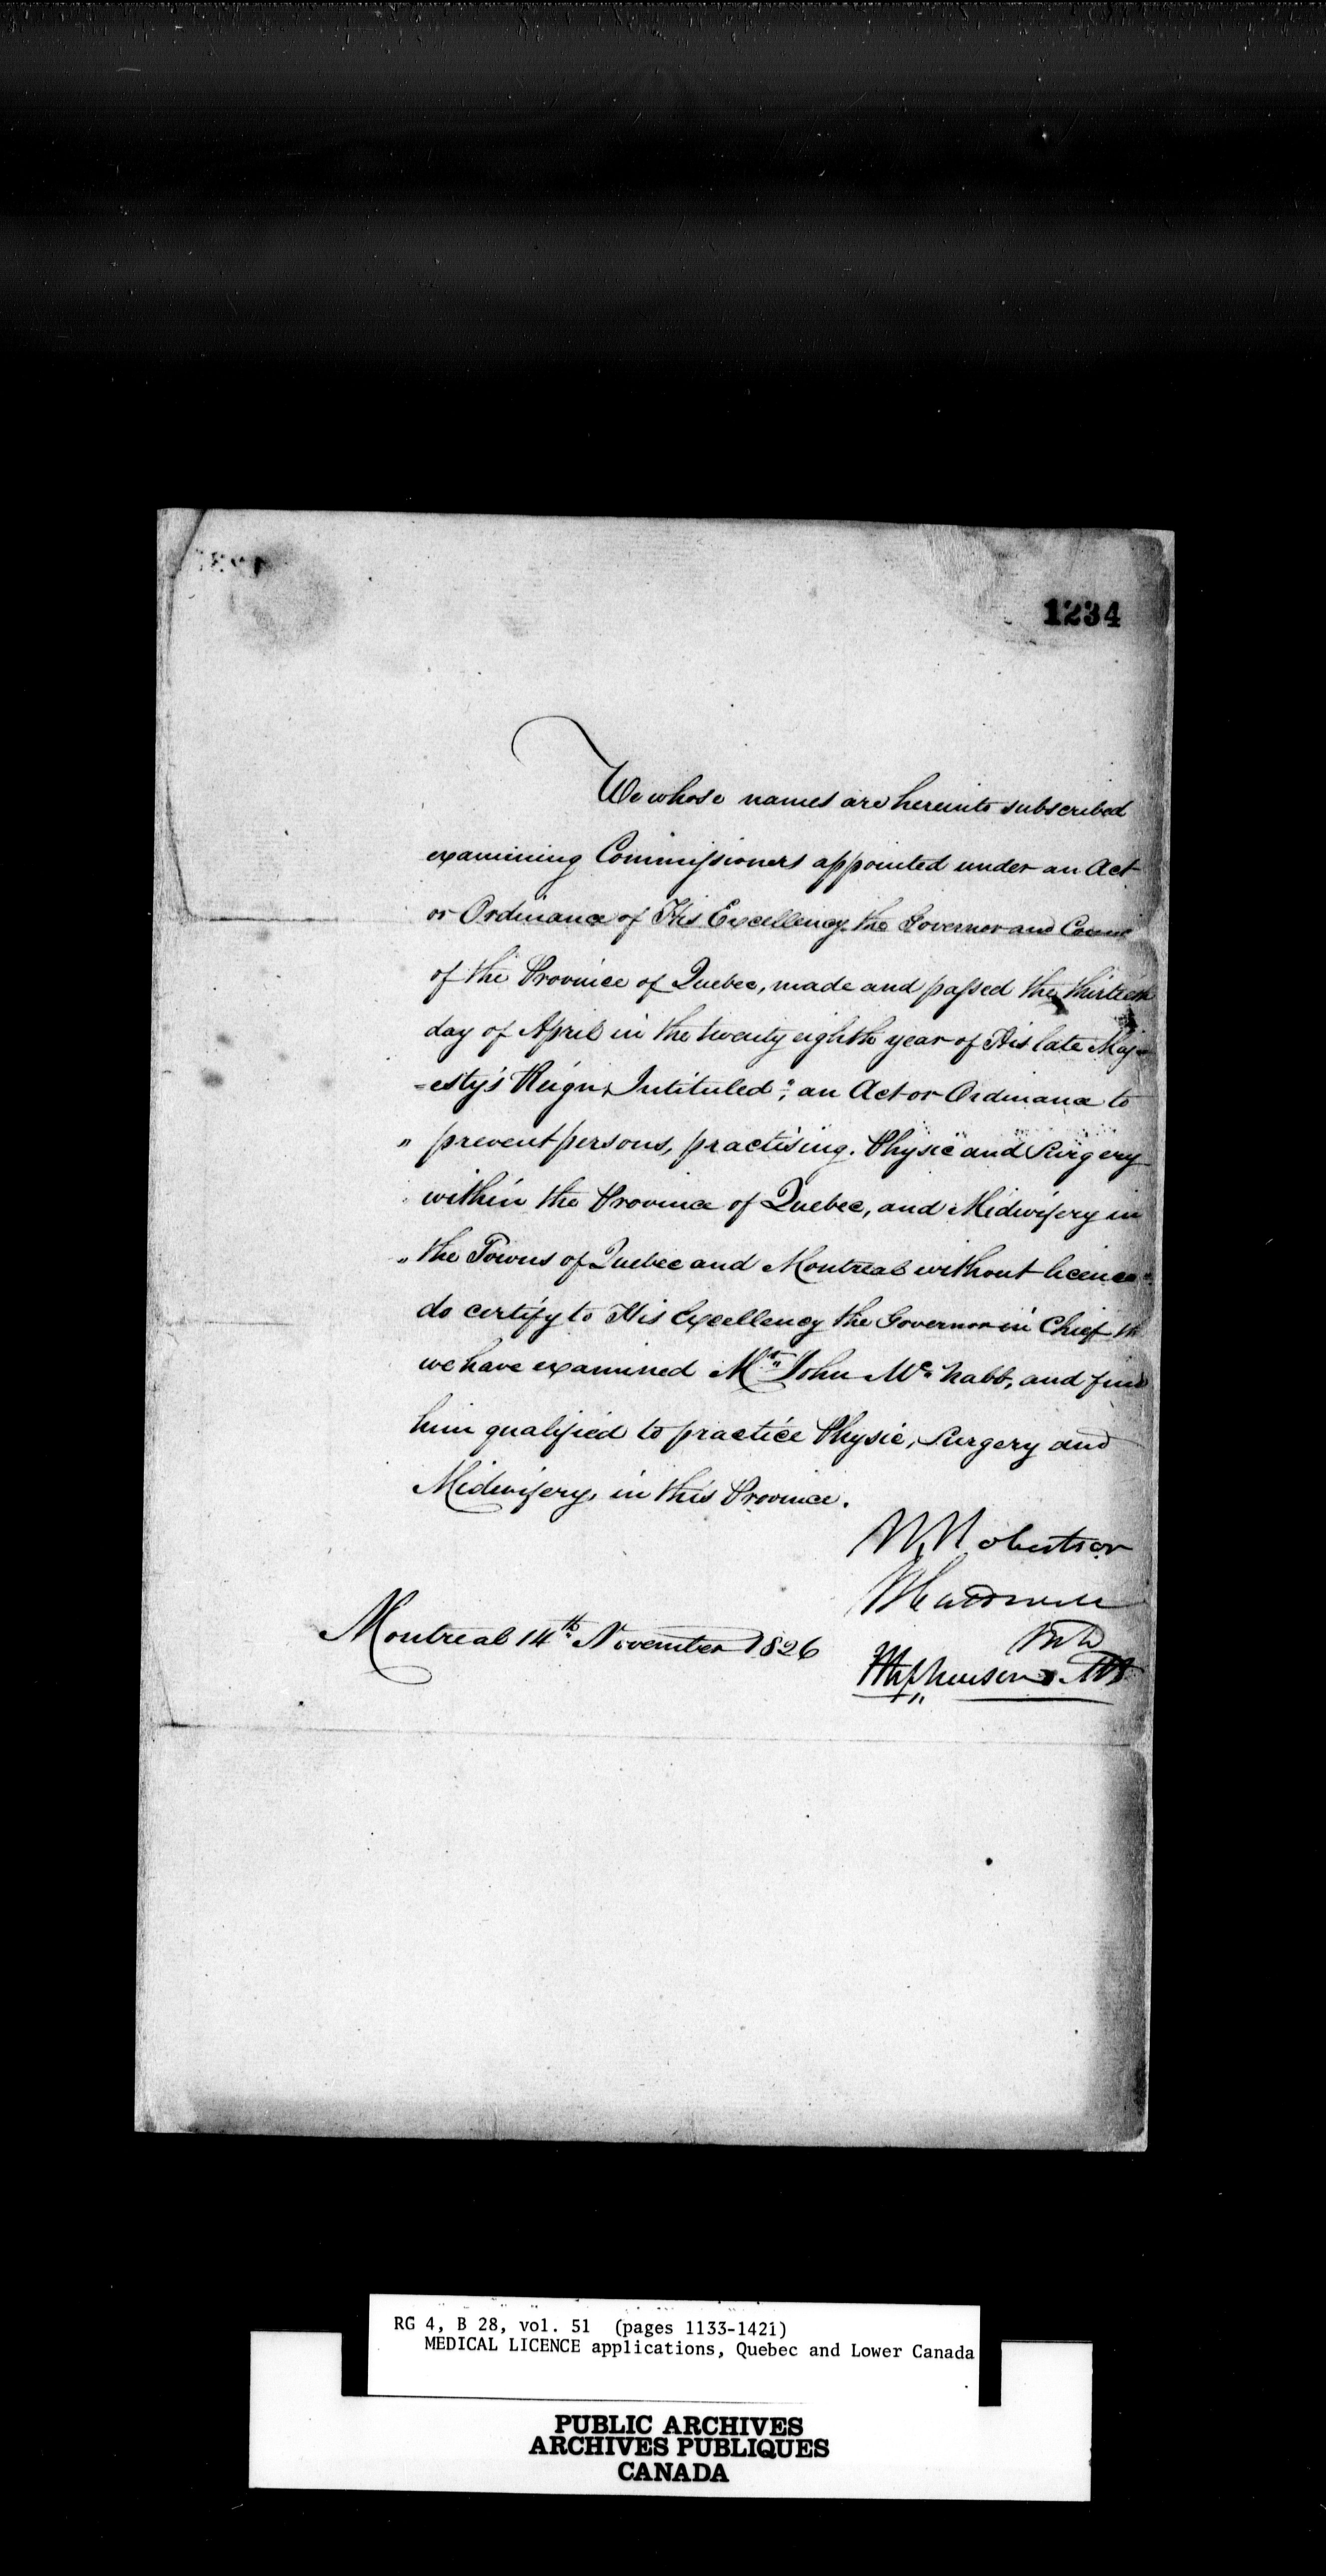 1234
We whose names are hereunto subscribed
examining Commissioners appointed under an Act
or Ordinance of His Excellency the Governor and
of the Province of Quebec, made and passed the thirtieth
day of April in the twenty eighth year of His late Maj=
=esty's Reign, Intituled "an Act or Ordinance to
" prevent persons, practising Physic and Surgery
within the Province of Quebec, and Midwifery in
" the Towns of Quebec and Montreal without licence"
do certify to His Excellency the Governor in Chief
we have examined Mr. John Mc. Nabb, and find
him qualified to practice Physic, Surgery and
Midwifery, in this Province.
W. Robertson
Montreal 14th November 1826
RG 4, B 28, vol. 51 (pages 1133-1421)
MEDICAL LICENCE applications, Quebec and Lower Canada
PUBLIC ARCHIVES
ARCHIVES PUBLIQUES
CANADA